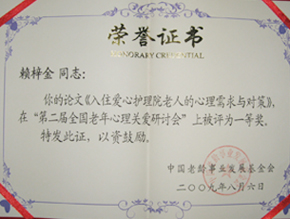 荣誉证书
HONORARY CREDENTIAL
赖梓金 同志:
你的论文《入住爱心护理院老人的心理需求与对策》,
在“第二届全国老年心理关爱研讨会”上被评为一等奖。
特发此证,以资鼓励。
中国老龄事业发展基金会
二〇〇九年八月六日